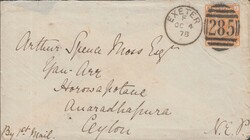 EXETER
OC 4
78
285
Arthur Spence Moss Esqr
Yan-Arr
Horowapotane
Anaradhapura
Ceylon
By 1st Mail.
N.E.P.